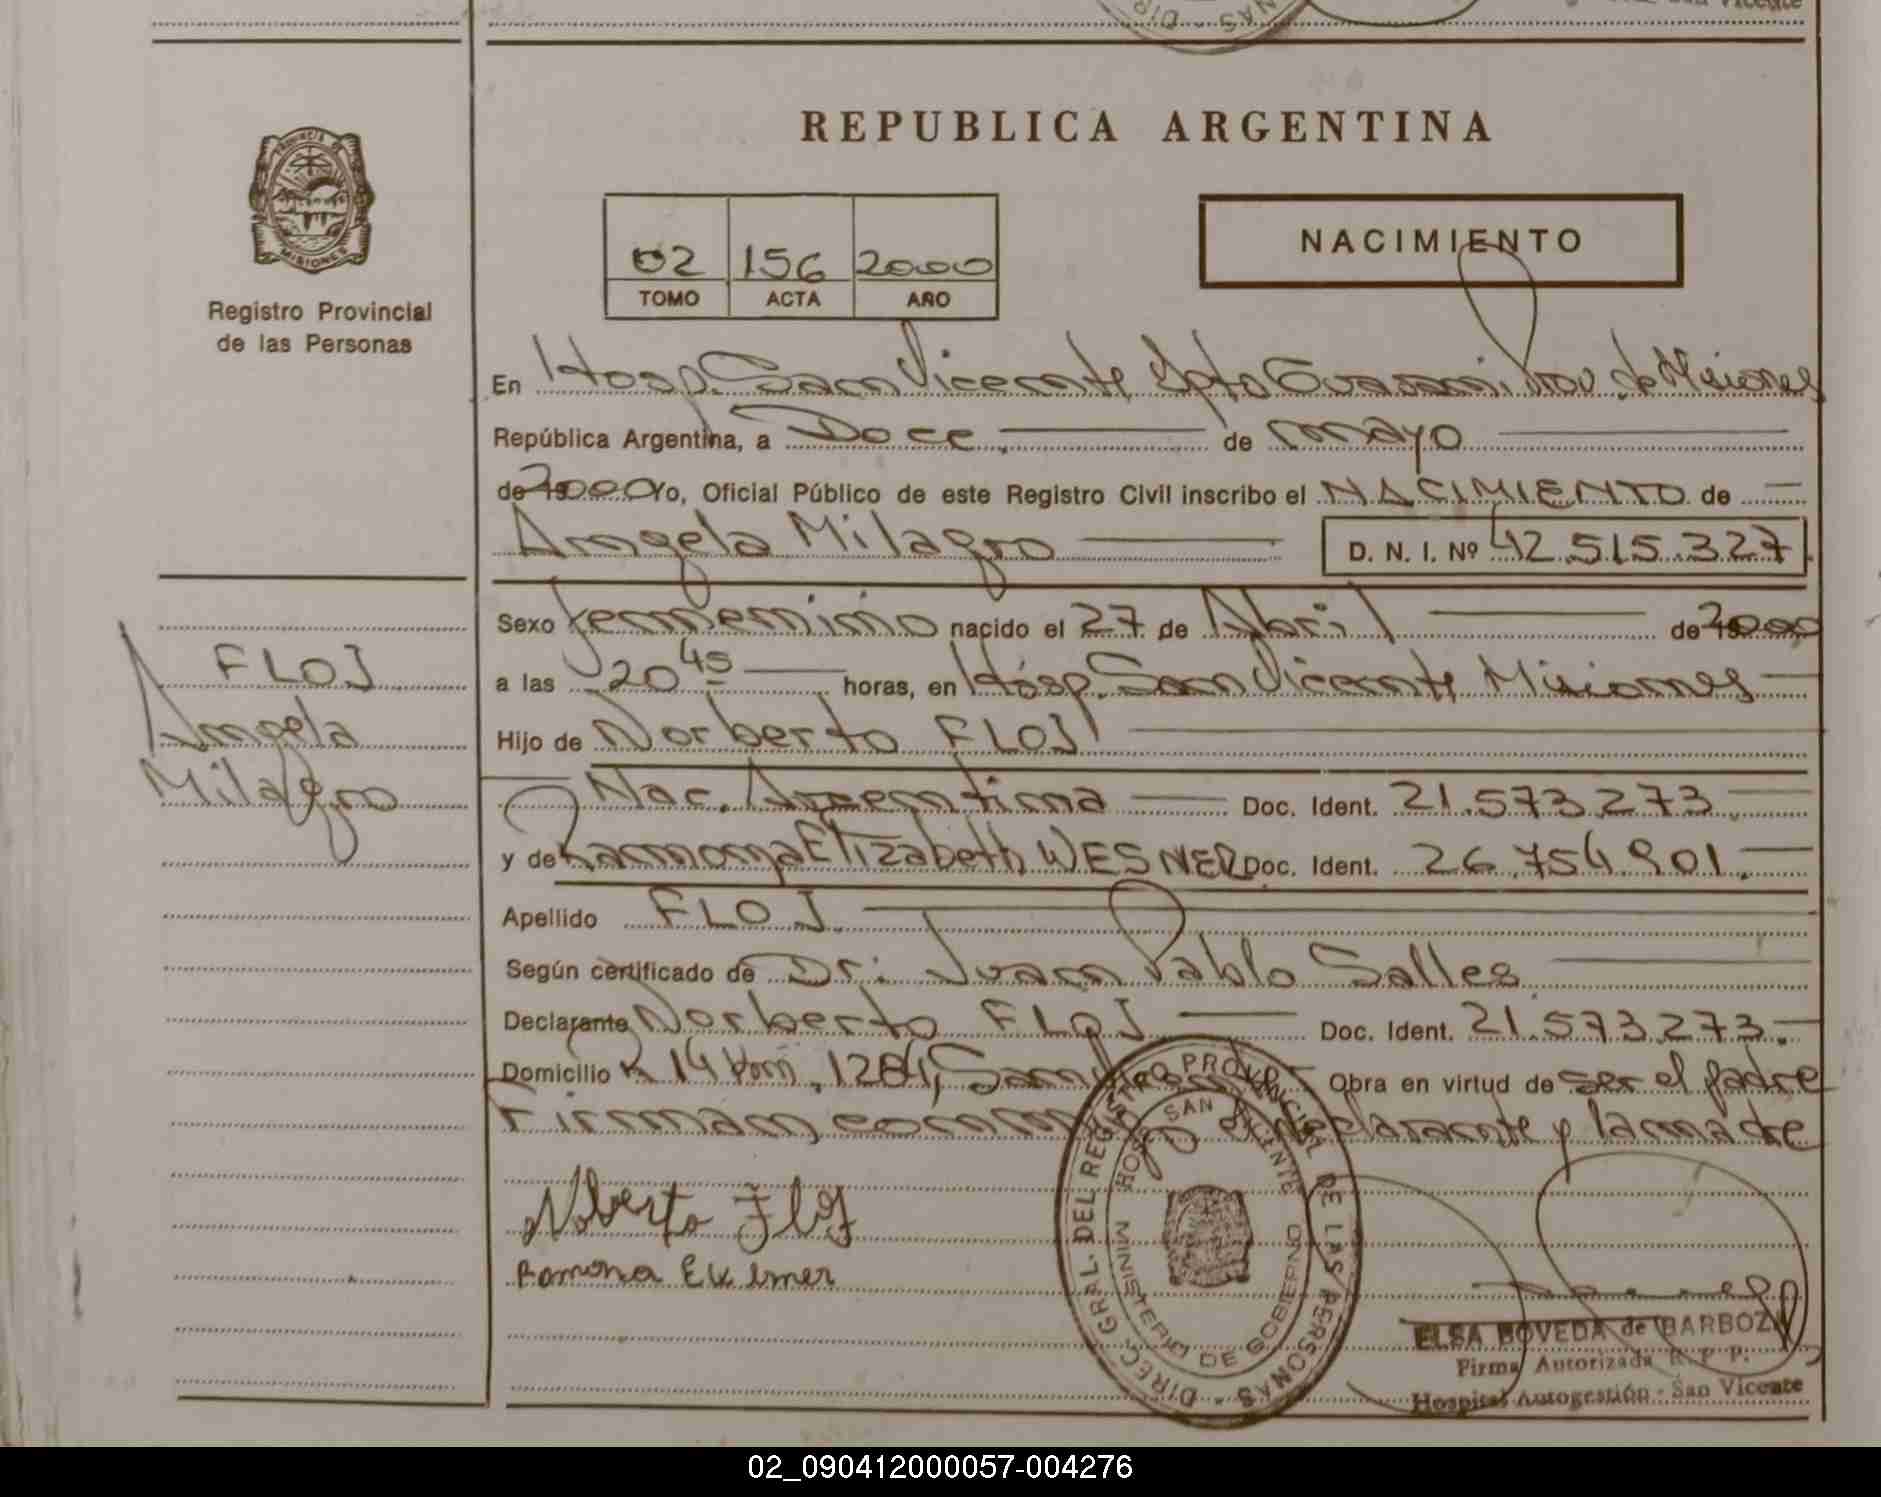 REPUBLICA ARGENTINA
PROVINCIA DE
MISIONES
Registro Provincial
de las Personas
02 156 2000
TOMO ACTA AÑO
NACIMIENTO
En Hosp. San Vicente Dpto Guarani Prov. de Misiones
República Argentina, a Doce de mayo
de 2000 Yo, Oficial Público de este Registro Civil inscribo el NACIMIENTO de
Angela Milagro D. N. I. Nº 42.515.327
Sexo femenino nacido el 27 de Abril de 2000
a las 20 45 horas, en Hosp. San Vicente Misiones
Hijo de Norberto FLOJ
Nac. Argentina Doc. Ident. 21.573.273
y de Ramona Elizabeth WESNER Doc. Ident. 26.754.901.
Apellido FLOJ
Según certificado de Dr: Juan Pablo Salles
Declarante Norberto FLOJ Doc. Ident. 21.573.273.
Domicilio R 14 km, 1284, San Vicente Obra en virtud de ser el padre
Firman, conmigo el declarante y la madre
FLOJ
Angela
Milagro
Norberto Floj
Ramona E W esner
DIREC. GRAL. DEL REGISTRO PROVINCIAL DE LAS PERSONAS
HOSP. SAN VICENTE
MINISTERIO DE GOBIERNO
ELSA BOVEDA de BARBOZA
Firma Autorizada R. P. P.
Hospital Autogestión - San Vicente
02_090412000057-004276